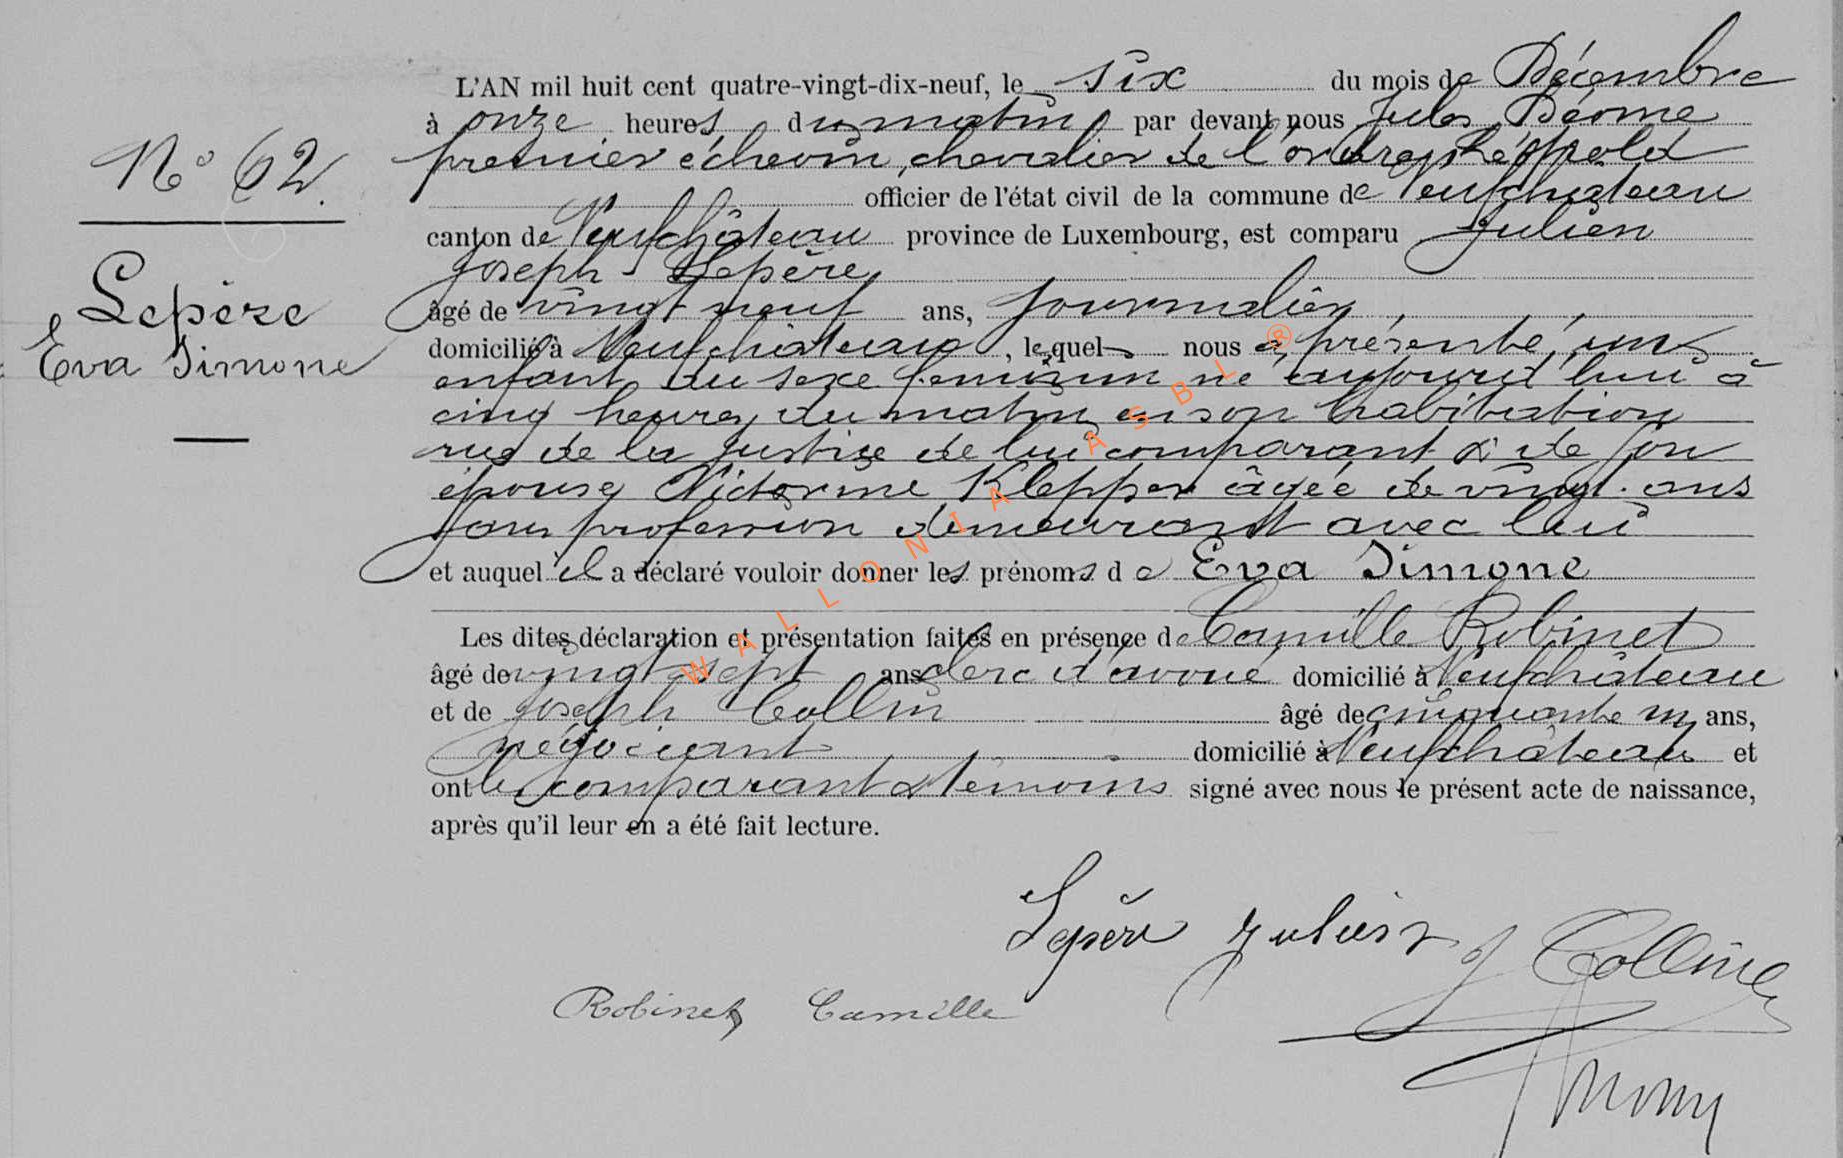 L'AN mil huit cent quatre-vingt-dix-neuf, le six du mois de Décembre
à onze heures du matin par devant nous Jules Déome
premier échevin, chevalier de l'ordre Léopold
N° 62.
officier de l'état civil de la commune de Neufchâteau
canton de Neufchâteau province de Luxembourg, est comparu Julien
Joseph Lepère
Lepère
Eva Simone
âgé de vingt neuf ans, journalier
domicilié à Neufchâteau, lequel nous a présenté un
enfant du sexe féminin né aujourd'hui à
cinq heures du matin en son habitation
rue de la Justice de lui comparant & de son
épouse Victorine Klepper âgée de vingt ans
sans profession demeurant avec lui
et auquel il a déclaré vouloir donner les prénoms de Eva Simone
Les dites déclaration et présentation faites en présence de Camille Robinet
âgé de vingt sept ans clerc d'avoué domicilié à Neufchâteau
et de Joseph Collin âgé de cinquante un ans,
négociant domicilié à Neufchâteau et
ont les comparant & témoins signé avec nous le présent acte de naissance,
après qu'il leur en a été fait lecture.
Lepère Julien J Collin
Robinet Camille
WALLONIA ASBL ®